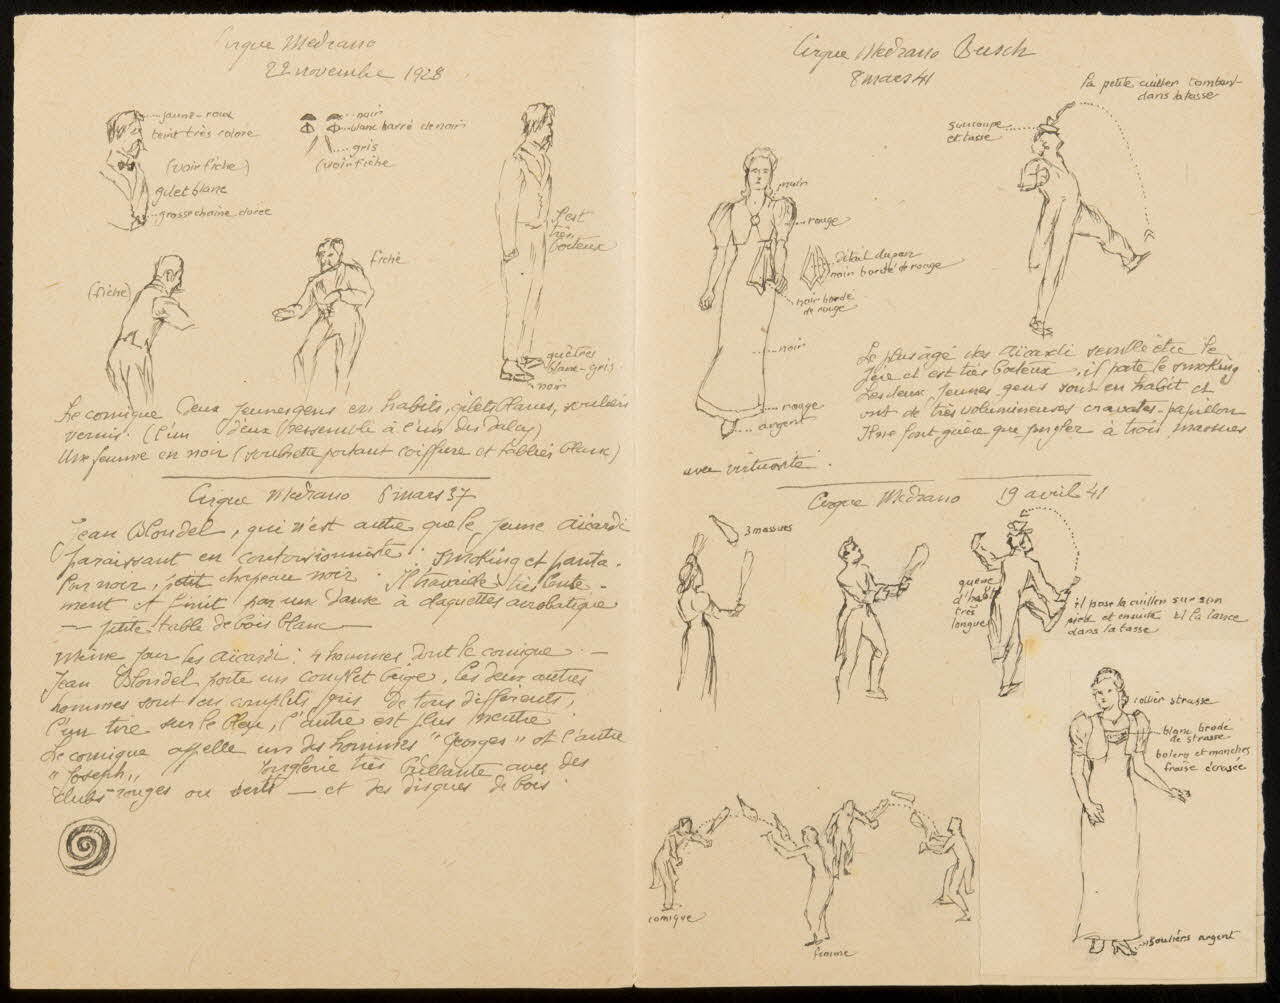 Cirque Medrano
22 novembre 1928
jaune-roux
teint très coloré
(voir fiche)
gilet blanc
grosse chaine dorée
noir
blanc barré de noir
gris
(voir fiche
il est
très
boiteux
(fiche)
fiche
guêtres
blanc-gris
noir
Le comique Deux jeunes gens en habits, gilets blancs, souliers
vernis. (l'un d'eux ressemble à l'un des Dalay)
Une femme en noir (soubrette portant coiffure et tablier blanc)
Cirque Medrano 6 mars 37
Jean Blondel, qui n'est autre que le jeune Aïcardi
paraissant en contorsionniste. Smoking et panta-
lon noir, petit chapeau noir. Il travaille très lente-
ment et finit par une danse à claquettes acrobatique
— petite table de bois blanc —
Même jour les Aïcardi : 4 hommes dont le comique —
Jean Blondel porte un complet beige, les deux autres
hommes sont en complets gris de tons différents,
l'un tire sur le bleu, l'autre est plus neutre
Le comique appelle un des hommes "Georges" et l'autre
"Joseph" Jonglerie très brillante avec des
clubs rouges ou verts — et des disques de bois
Cirque Medrano Busch
8 mars 41
La petite cuiller tombant
dans la tasse
soucoupe
et tasse
rouge
détail du
noir bordé de rouge
noir bordé
de rouge
noir
rouge
argent
Le plus âgé des Aïcardi semble être le
père et est très boiteux, il porte le smoking
Les deux jeunes gens sont en habit et
ont de très volumineuses cravates-papillon
Il ne font guère que jongler à trois massues
avec virtuosité.
Cirque Medrano 19 avril 41
3 massues
queue
d'habit
très
longue
il pose la cuiller sur son
pied et ensuite il la lance
dans la tasse
collier strasse
blanc brodé
de strasse
boléro et manches
fraise écrasée
souliers argent
comique
femme